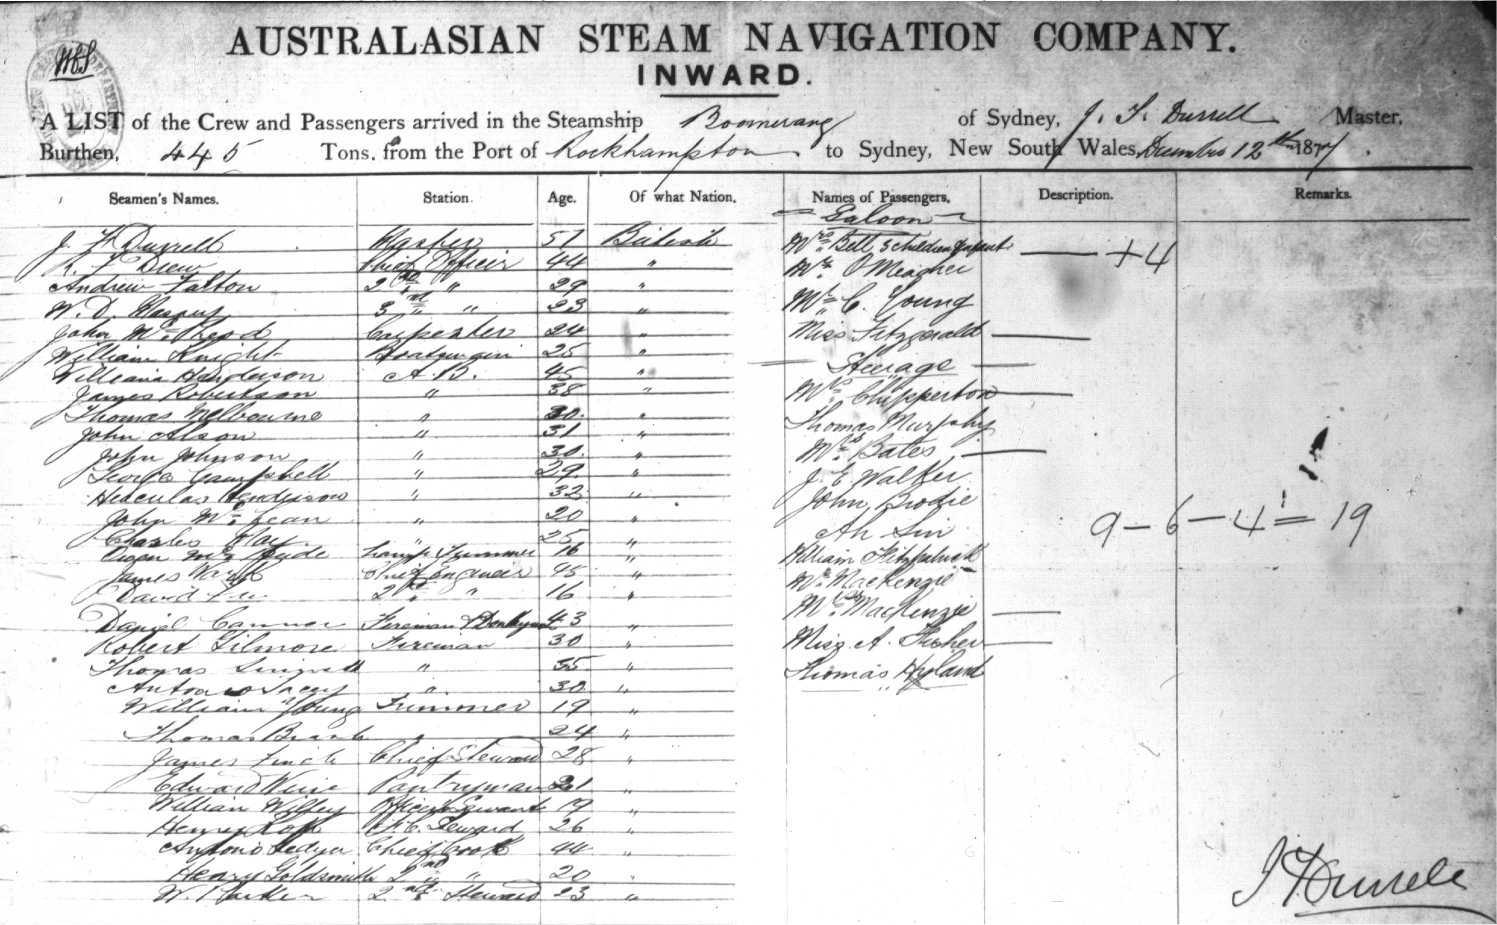 W&S
AUSTRALASIAN STEAM NAVIGATION COMPANY.
INWARD.
A LIST of the Crew and Passengers arrived in the Steamship Boomerang of Sydney, J. F. Durrell Master,
Burthen, 445 Tons. from the Port of Rockhampton to Sydney, New South Wales, December 12th 1877.
Seamen's Names. Station. Age. Of what Nation. Names of Passengers. Description. Remarks.
Saloon
J. F. Durrell Master 57 British
R. F. Drew Chief Officer 44 "
Andrew Falton 2nd " 29 "
W. D. 3rd " 23 "
John McLeod Carpenter 24 "
William Knight Boatswain 25 "
William Henderson A.B. 45 "
James Robertson " 38 "
Thomas Melbourne " 30 "
John Alson " 31 "
John Johnson " 30 "
George Campbell " 29 "
Herculas Henderson " 32 "
John McLean " 20 "
Charles Hay " 25 "
Owen Lamp Trimmer 16 "
James Ward Chief Engineer 45 "
David 2nd " 16 "
Daniel Connor Fireman & Donkeyman 43 "
Robert Gilmore Fireman 30 "
Thomas " 35 "
Antonio " 30 "
William Young Trimmer 19 "
Thomas " 24 "
James Finch Chief Steward 28 "
Edward Pantryman 21 "
William Wilfey Officers Servant 19 "
Henry F.C. Steward 26 "
Antonio Chief Cook 44 "
Henry Goldsmith 2nd " 20 "
W. Parker 2nd Steward 23 "
Mrs Bell 3 children & infant + 4
Mr O'Meagher
Mr C. Young
Miss Fitzgerald
Steerage
Mrs Chipperton
Thomas Murphy
Mrs Bates
J. E. Walker
John Brodie
Ah Sin
William Fitzpatrick
Mr MacKenzie
Mrs MacKenzie
Miss A. Fisher
Thomas Hyland
9 - 6 - 4 = 19
J F Durrell